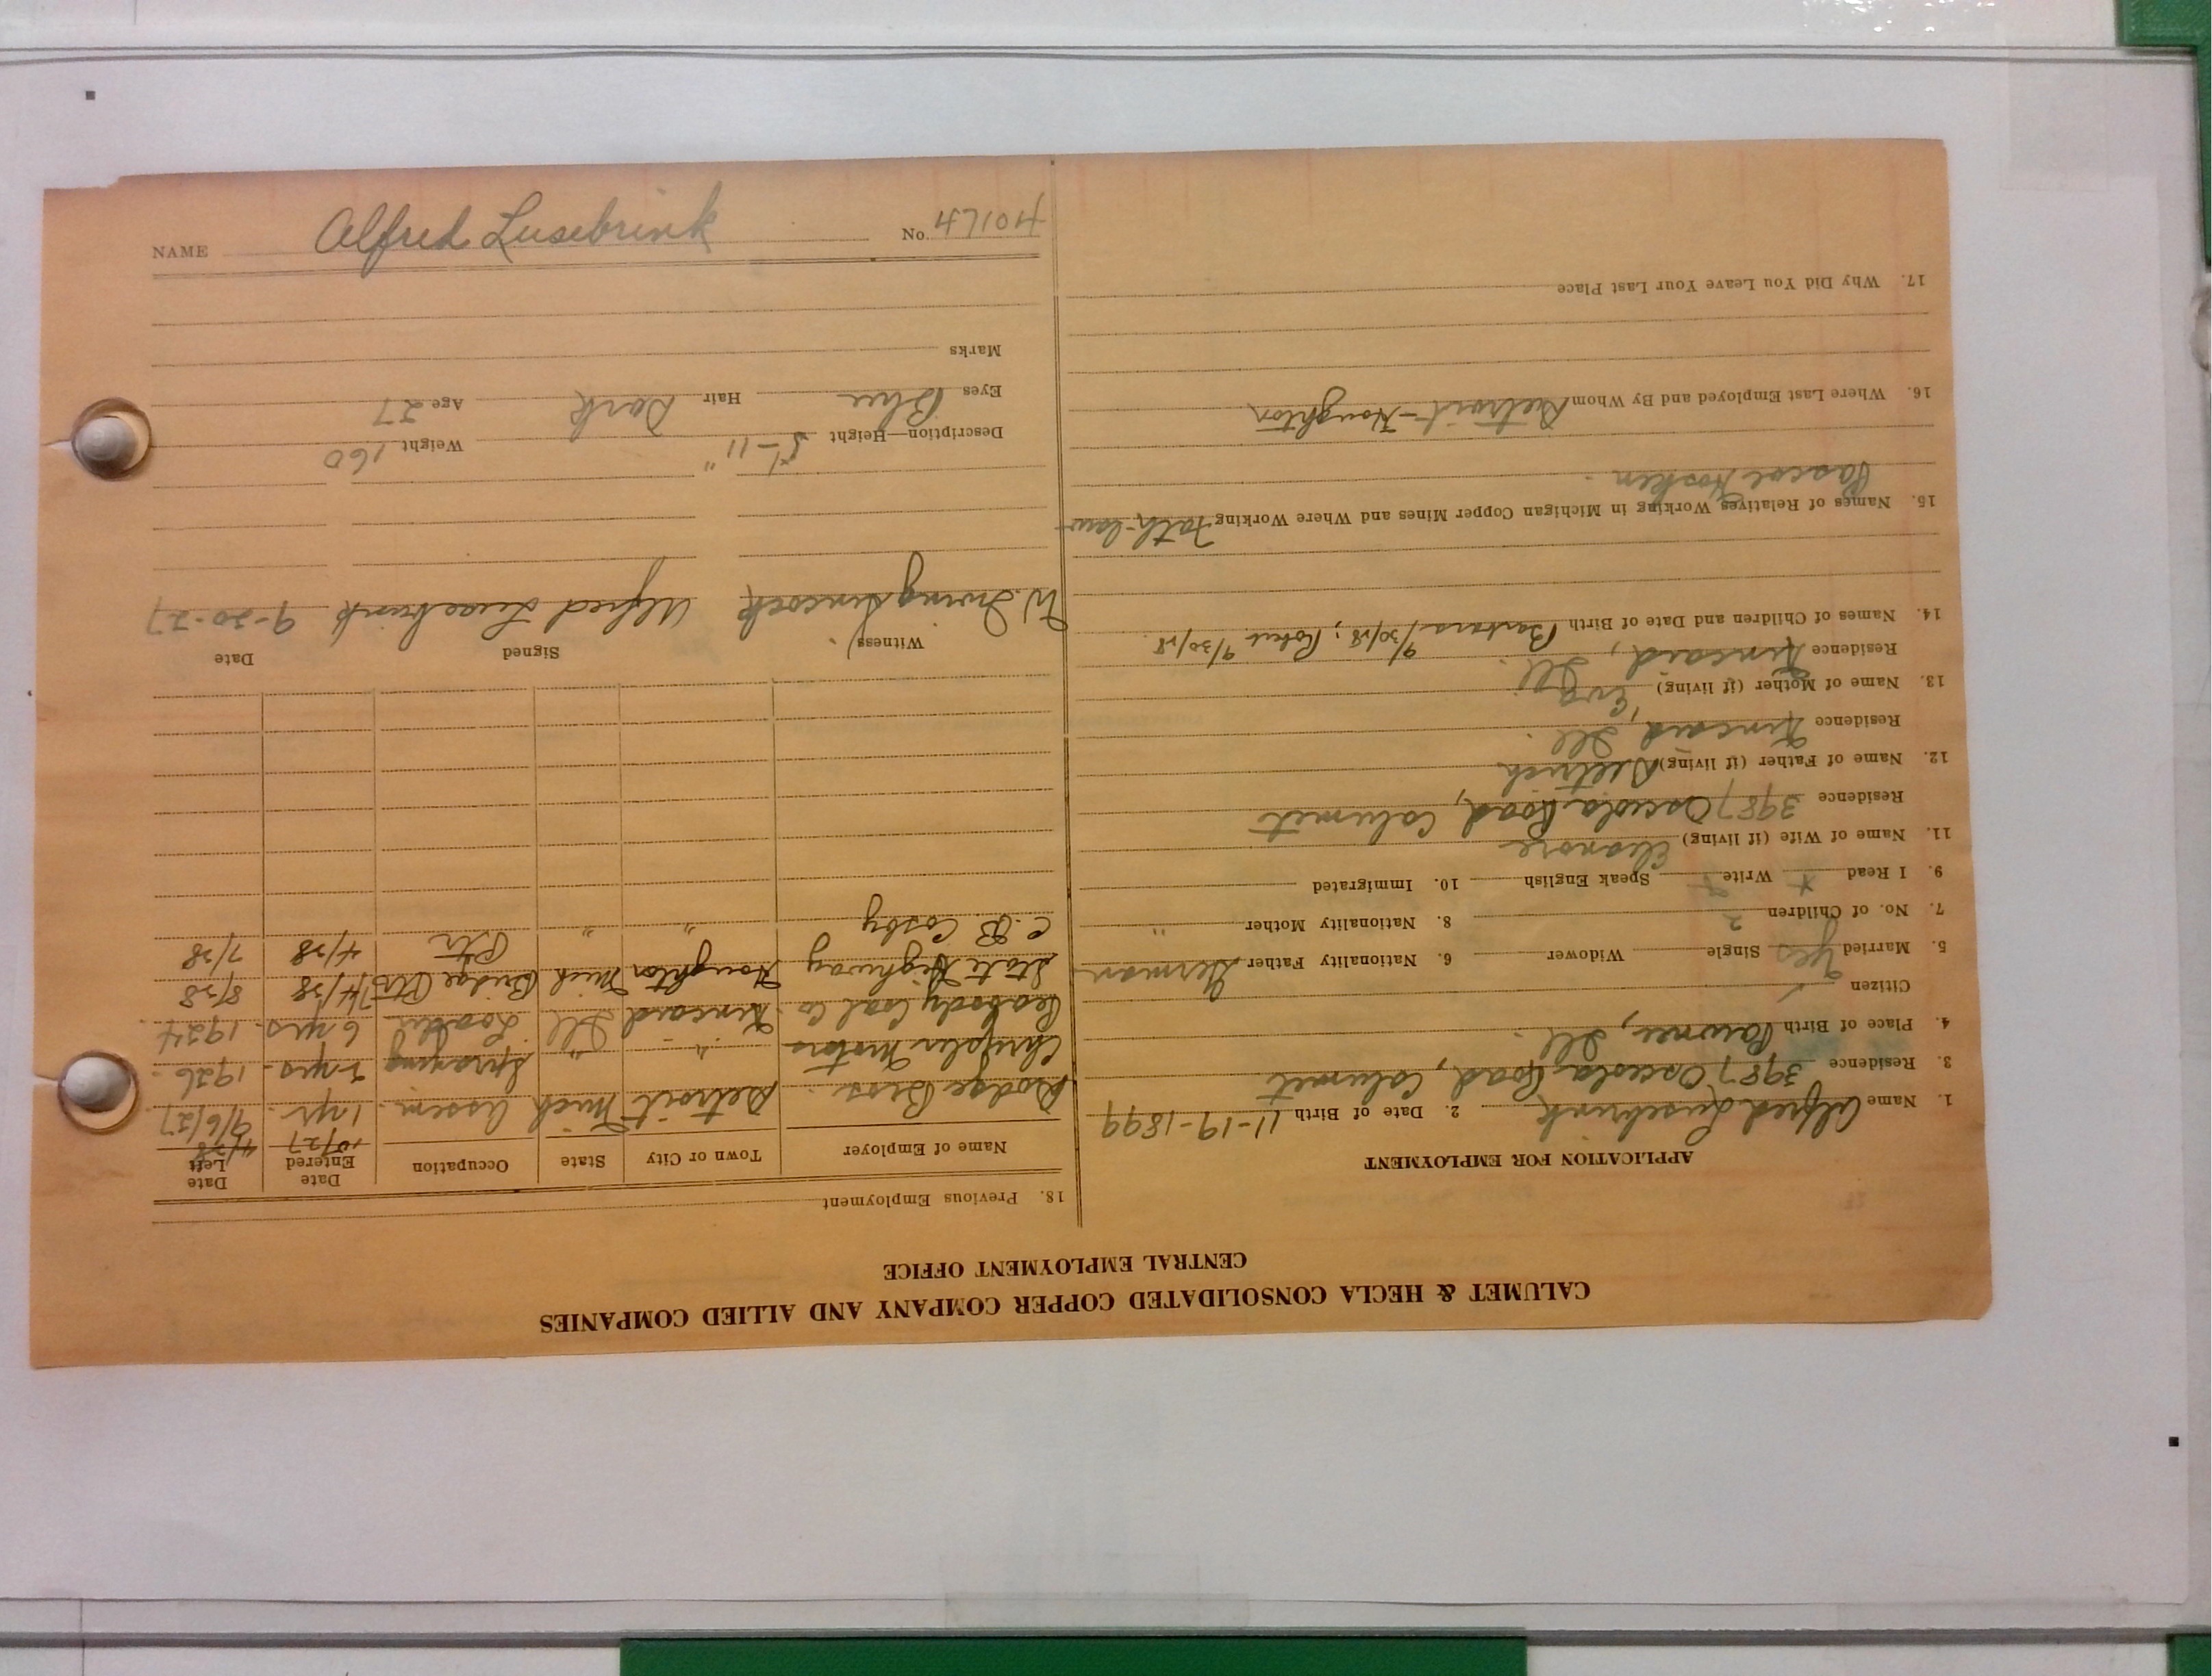 CALUMET & HECLA CONSOLIDATED COPPER COMPANY AND ALLIED COMPANIES
CENTRAL EMPLOYMENT OFFICE
APPLICATION FOR EMPLOYMENT
1. Name Alfred Lusebrink 2. Date of Birth 11-19-1899
3. Residence 3987 Osceola Road, Calumet
4. Place of Birth Pawnee, Ill.
Citizen ✓
5. Married Yes Single Widower 6. Nationality Father German
7. No. of Children 2 8. Nationality Mother "
9. I Read Write Speak English 10. Immigrated
11. Name of Wife (if living) Eleanore
Residence 3987 Osceola Road, Calumet
12. Name of Father (if living) Dietrich
Residence Kincaid, Ill.
13. Name of Mother (if living) Eva
Residence Kincaid, Ill.
14. Names of Children and Date of Birth Barbara 9/30/28; Robert 9/30/28.
15. Names of Relatives Working in Michigan Copper Mines and Where Working Fath-law
Pascoe Hosken
16. Where Last Employed and By Whom Detroit-Houghton
17. Why Did You Leave Your Last Place
18. Previous Employment
Name of Employer Town or City State Occupation Date Entered Date Left
10/27 4/28
Dodge Bros. Detroit Mich Assem. 1 yr. 9/6/27
Chrysler Motors " " Spraying 2 yrs. 1926
Peabody Coal Co. Kincaid Ill Loader 6 yrs. 1924
State Highway Houghton Mich Bridge Ptr 7/4/38 8/38
C.B. Cosby " " Ptr 4/38 7/38
Witness Signed Date
W. Irving Hincock Alfred Lusebrink 9-20-27
Description—Height 5'-11" Weight 160
Eyes Blue Hair Dark Age 27
Marks
NAME Alfred Lusebrink No. 47104